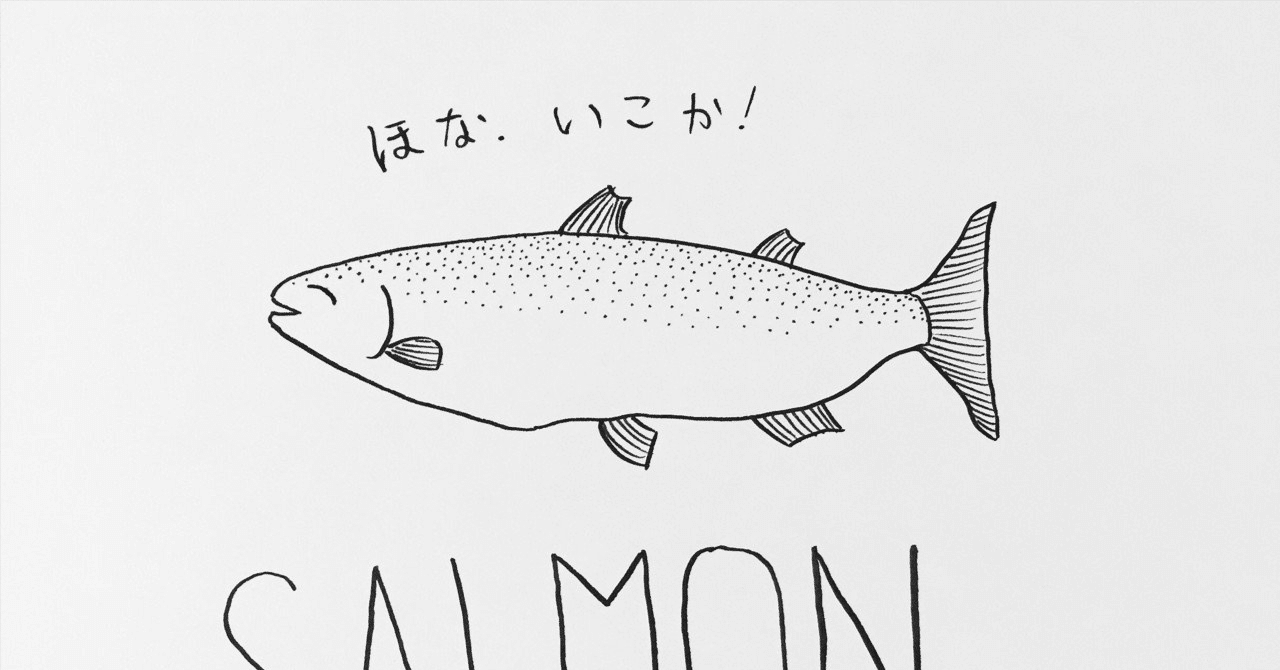 ほな、いこか!
SALMON